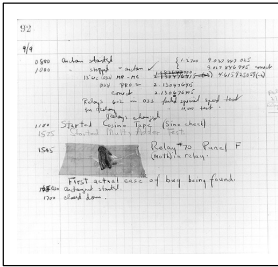 92
9/9
0800 Antan started
1000 " stopped - antan ✓
13" uc MP - MC
033 PRO 2 2.130476415
correct 2.130676415
Relays 6-2 in 033 failed special speed test
in relay " test
Relays changed
1100 Started Cosine Tape (Sine check)
1525 Started Multi Adder Test.
1545 Relay #70 Panel F
(Moth) in relay.
First actual case of bug being found.
antangent started.
1700 closed down.